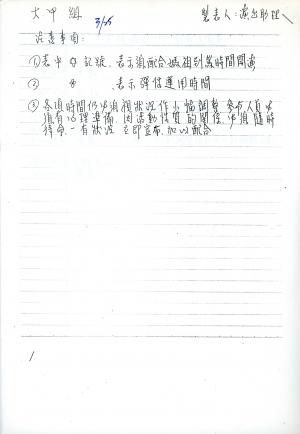 大甲組 3/25 製表人:演出助理
注意事項:
①表中 ✩ 記號,表示須配合媽祖到駕時間開演
② " ,表示彈性運用時間
③各項時間仍必須視狀況作小幅調整,參加人員必
須有心理準備,因活動性質的關係,必須隨時
待命,一有狀況,立即宣布,加以配合
1